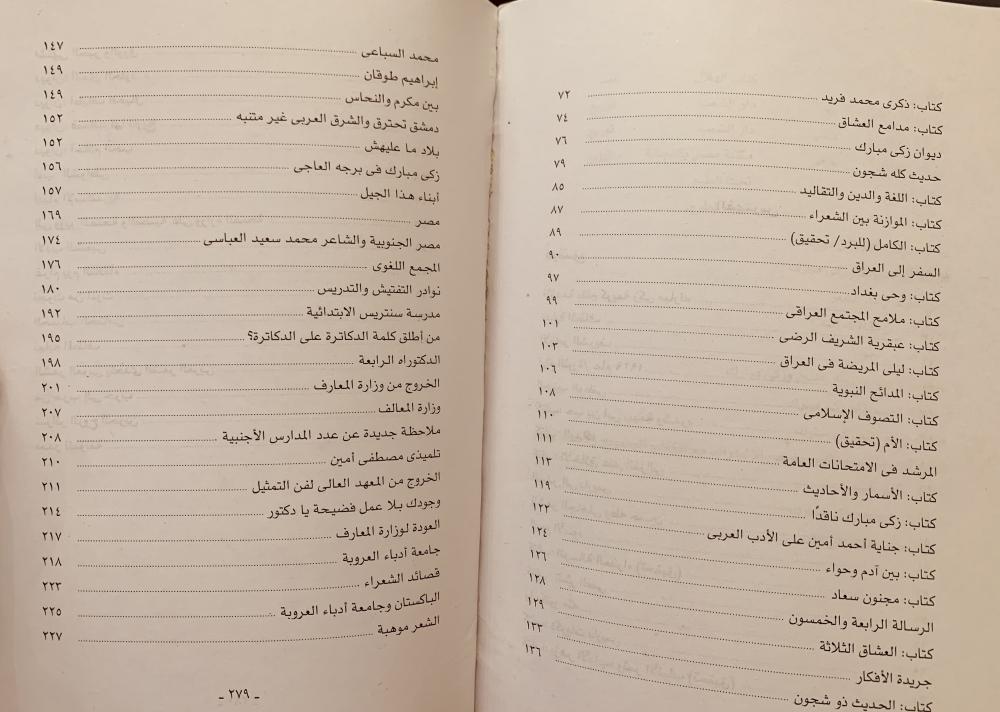 كتاب: ذكرى محمد فريد ........ ٧٢
كتاب: مدامع العشاق ........ ٧٤
ديوان زكى مبارك ........ ٧٦
حديث كله شجون ........ ٧٩
كتاب: اللغة والدين والتقاليد ........ ٨٥
كتاب: الموازنة بين الشعراء ........ ٨٧
كتاب: الكامل (للبرد/ تحقيق) ........ ٨٩
السفر إلى العراق ........ ٩٠
كتاب: وحى بغداد ........ ٩٧
كتاب: ملامح المجتمع العراقى ........ ٩٩
كتاب: عبقرية الشريف الرضى ........ ١٠١
كتاب: ليلى المريضة فى العراق ........ ١٠٣
كتاب: المدائح النبوية ........ ١٠٦
كتاب: التصوف الإسلامى ........ ١٠٨
كتاب: الأم (تحقيق) ........ ١١٠
المرشد فى الامتحانات العامة ........ ١١١
كتاب: الأسمار والأحاديث ........ ١١٣
كتاب: زكى مبارك ناقدًا ........ ١١٩
كتاب: جناية أحمد أمين على الأدب العربى ........ ١٢٢
كتاب: بين آدم وحواء ........ ١٢٤
كتاب: مجنون سعاد ........ ١٢٦
الرسالة الرابعة والخمسون ........ ١٢٨
كتاب: العشاق الثلاثة ........ ١٢٩
جريدة الأفكار ........ ١٣٣
كتاب: الحديث ذو شجون ........ ١٣٦
محمد السباعى ........ ١٤٧
إبراهيم طوقان ........ ١٤٩
بين مكرم والنحاس ........ ١٤٩
دمشق تحترق والشرق العربى غير متنبه ........ ١٥٢
بلاد ما عليهش ........ ١٥٢
زكى مبارك فى برجه العاجى ........ ١٥٦
أبناء هذا الجيل ........ ١٥٧
مصر ........ ١٦٩
مصر الجنوبية والشاعر محمد سعيد العباسى ........ ١٧٤
المجمع اللغوى ........ ١٧٦
نوادر التفتيش والتدريس ........ ١٨٠
مدرسة سنتريس الابتدائية ........ ١٩٢
من أطلق كلمة الدكاترة على الدكاترة؟ ........ ١٩٥
الدكتوراه الرابعة ........ ١٩٨
الخروج من وزارة المعارف ........ ٢٠١
وزارة المعالف ........ ٢٠٧
ملاحظة جديدة عن عدد المدارس الأجنبية ........ ٢٠٨
تلميذى مصطفى أمين ........ ٢١٠
الخروج من المعهد العالى لفن التمثيل ........ ٢١١
وجودك بلا عمل فضيحة يا دكتور ........ ٢١٤
العودة لوزارة المعارف ........ ٢١٧
جامعة أدباء العروبة ........ ٢١٨
قصائد الشعراء ........ ٢٢٣
الباكستان وجامعة أدباء العروبة ........ ٢٢٥
الشعر موهبة ........ ٢٢٧
ـ ٢٧٩ ـ